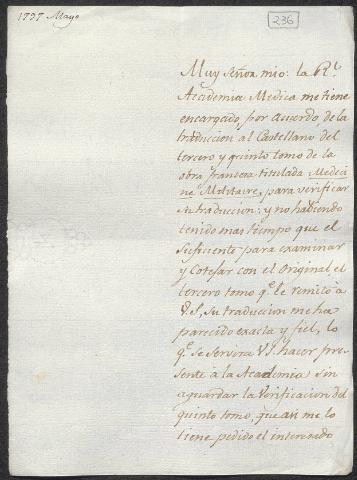 1797 Mayo
236
Muy Señor mio: la Rl.
Academia Medica me tiene
encargado, por acuerdo, de la
traduccion al Castellano del
tercero y quinto tomo de la
obra francesa titulada Medeci
ne Militaire, para verificar
su traduccion: y no habiendo
tenido mas tiempo que el
suficiente para examinar
y Cotejar con el Original, el
tercero tomo qe. le remito à
V.S, su traduccion me ha
parecido exacta y fiel, lo
qe. se servira V.S. hacer pre-
sente à la Academia sin
aguardar la Verificacion del
quinto tomo, que asi me lo
tiene pedido el interesado